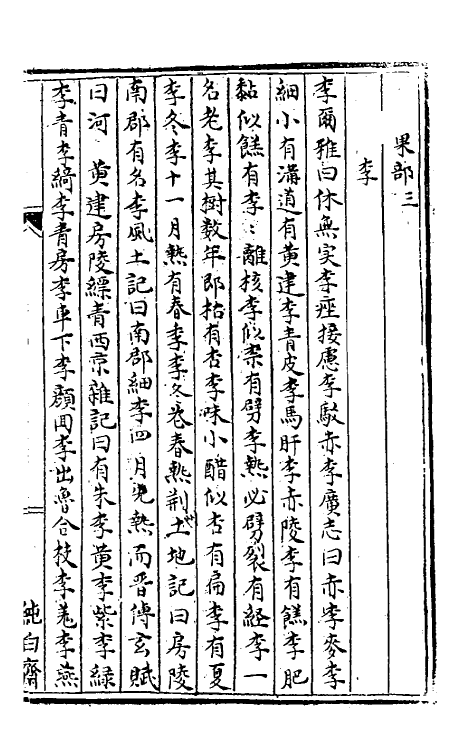 果部三
李
李爾雅曰休無实李痤接慮李駁赤李廣志曰赤李麥李
細小有溝道有黄建李青皮李馬肝李赤陵李有餻李肥
黏似餻有李〻離核李似柰有劈李熟必劈裂有経李一
名老李其樹数年即枯有杏李味小醋似杏有扁李有夏
李冬李十一月熟有春李李冬花春熟荆土地記曰房陵
南郡有名李風土記曰南郡細李四月先熟而晋傅玄賦
曰河 黄建房陵縹青西京雜記曰有朱李黄李紫李緑
李青李綺李青房李車下李顔囬李出魯合枝李羗李燕
純白齋